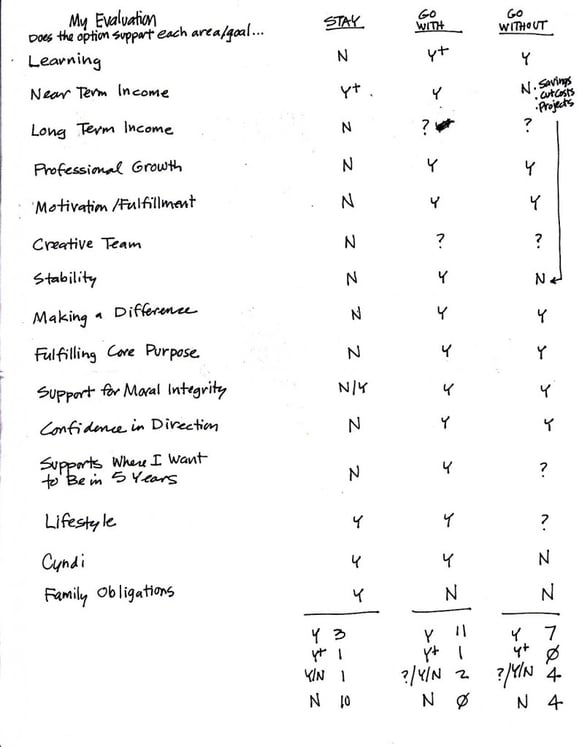 My Evaluation
Does the option support each area/goal... STAY GO WITH GO WITHOUT
Learning N Y+ Y
Near Term Income Y+ . Y N • Savings
• Cut Costs
• Projects
Long Term Income N ? ?
Professional Growth N Y Y
Motivation/Fulfillment N Y Y
Creative Team N ? ?
Stability N Y N
Making a Difference N Y Y
Fulfilling Core Purpose N Y Y
Support for Moral Integrity N/Y Y Y
Confidence in Direction N Y Y
Supports Where I Want
to Be in 5 Years N Y ?
Lifestyle Y Y ?
Cyndi Y Y N
Family Obligations Y N N
Y 3 Y 11 Y 7
Y+ 1 Y+ 1 Y+ Ø
Y/N 1 ?/Y/N 2 ?/Y/N 4
N 10 N Ø N 4